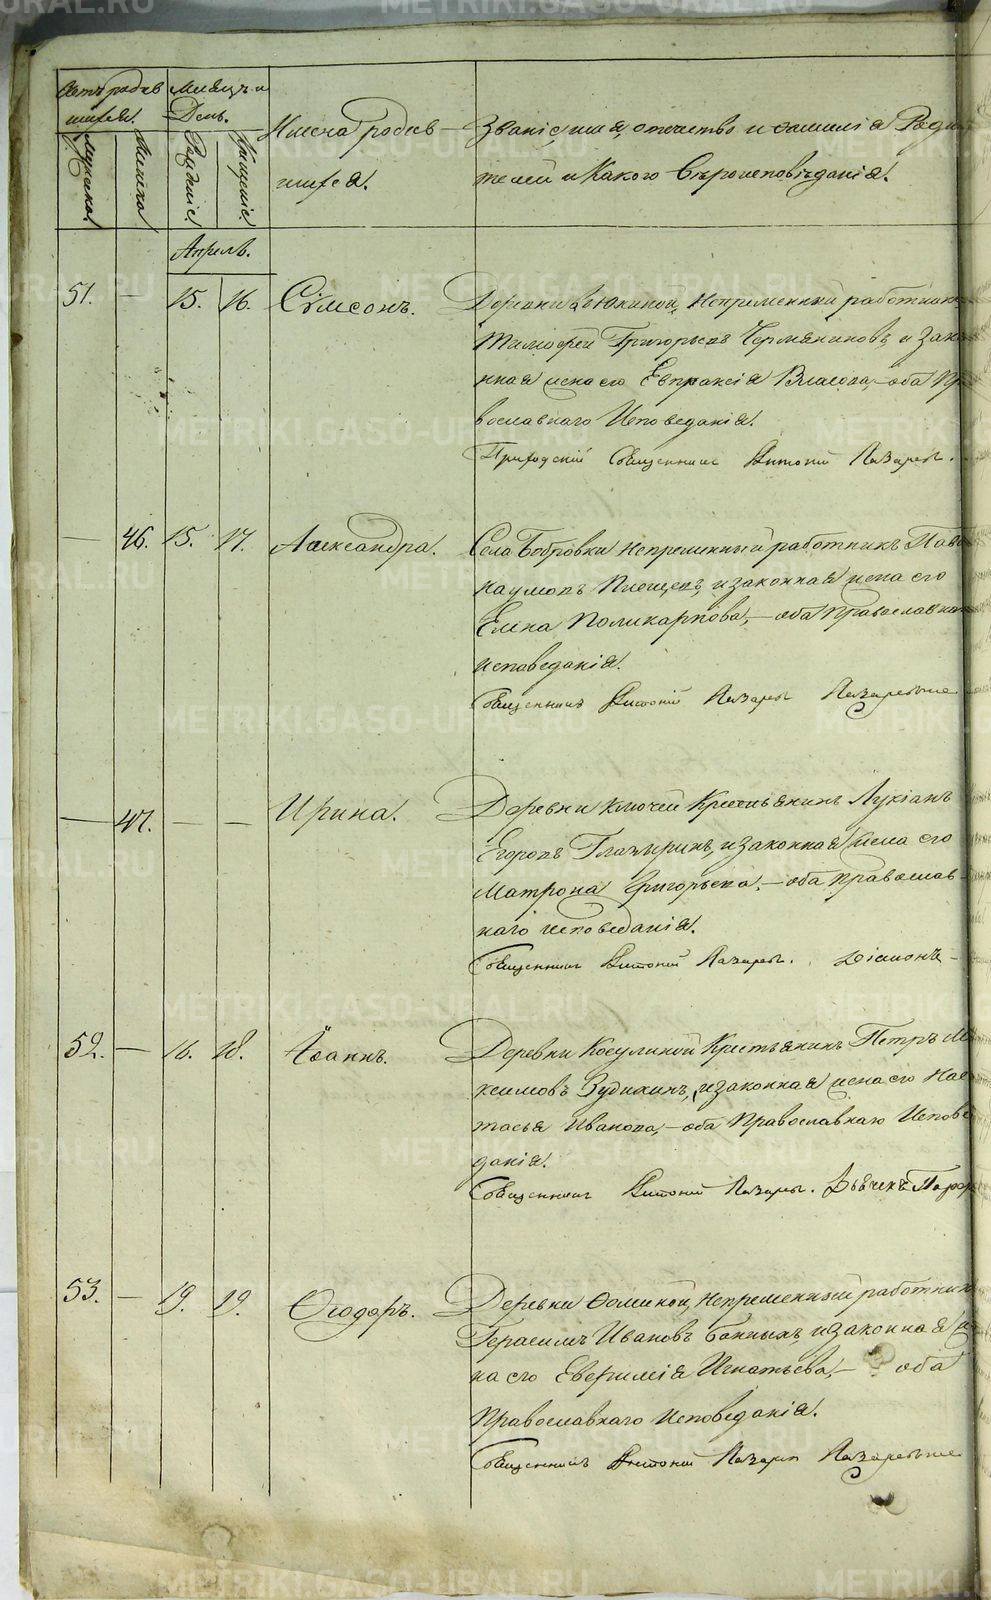 METRIKI.GASO-URAL.RU
Счетъ родив
шихся.
Мужеска
Женска
Мѣсяцъ и
День.
Рожденіе
Крещеніе
Имена Родив—
шихся.
Званіе, имя, отечество и фамилія Роди
телей и Какого Вѣроисповѣданія.
Апрель.
51. — 15. 16. Сѵмеонъ.
Деревни Непременный работникъ
Тимофей Григорьевъ Чермяниновъ и Зако
нная жена его Евпраксія Власова, — оба Пра
вославнаго Исповеданія.
Приходскій Священникъ Антоній Лазаревъ.
— 46. 15. 17. Александра.
Села Бобровки Непременный работникъ Паве
Наумовъ и законная жена его
Елена Поликарпова, — оба Православна
исповеданія.
Священникъ Антоній Лазаревъ
— 47. — — Ирина.
Деревни Ключей Крестьянинъ Лукіанъ
Егоровъ Глазыринъ, и законная жена его
Матрона Григорьева. — оба православ—
наго исповеданія.
Священникъ Антоній Лазаревъ. Діаконъ —
52. — 16. 18. Іоаннъ.
Деревни Косулиной Крестьянинъ Петръ Ма
ксимовъ Зудихинъ, и законная жена его Нас
тасья Иванова, — оба Православнаго Испове
данія.
Священникъ Антоній Лазаревъ. Дьячекъ
53. — 19. 19. Ѳеодоръ.
Деревни Ѳоминой, Непременный работник
Герасимъ Ивановъ Банныхъ, и законная же
на его Евфимія Игнатьева, — оба
Православнаго Исповеданія.
Священникъ Антоній Лазаревъ